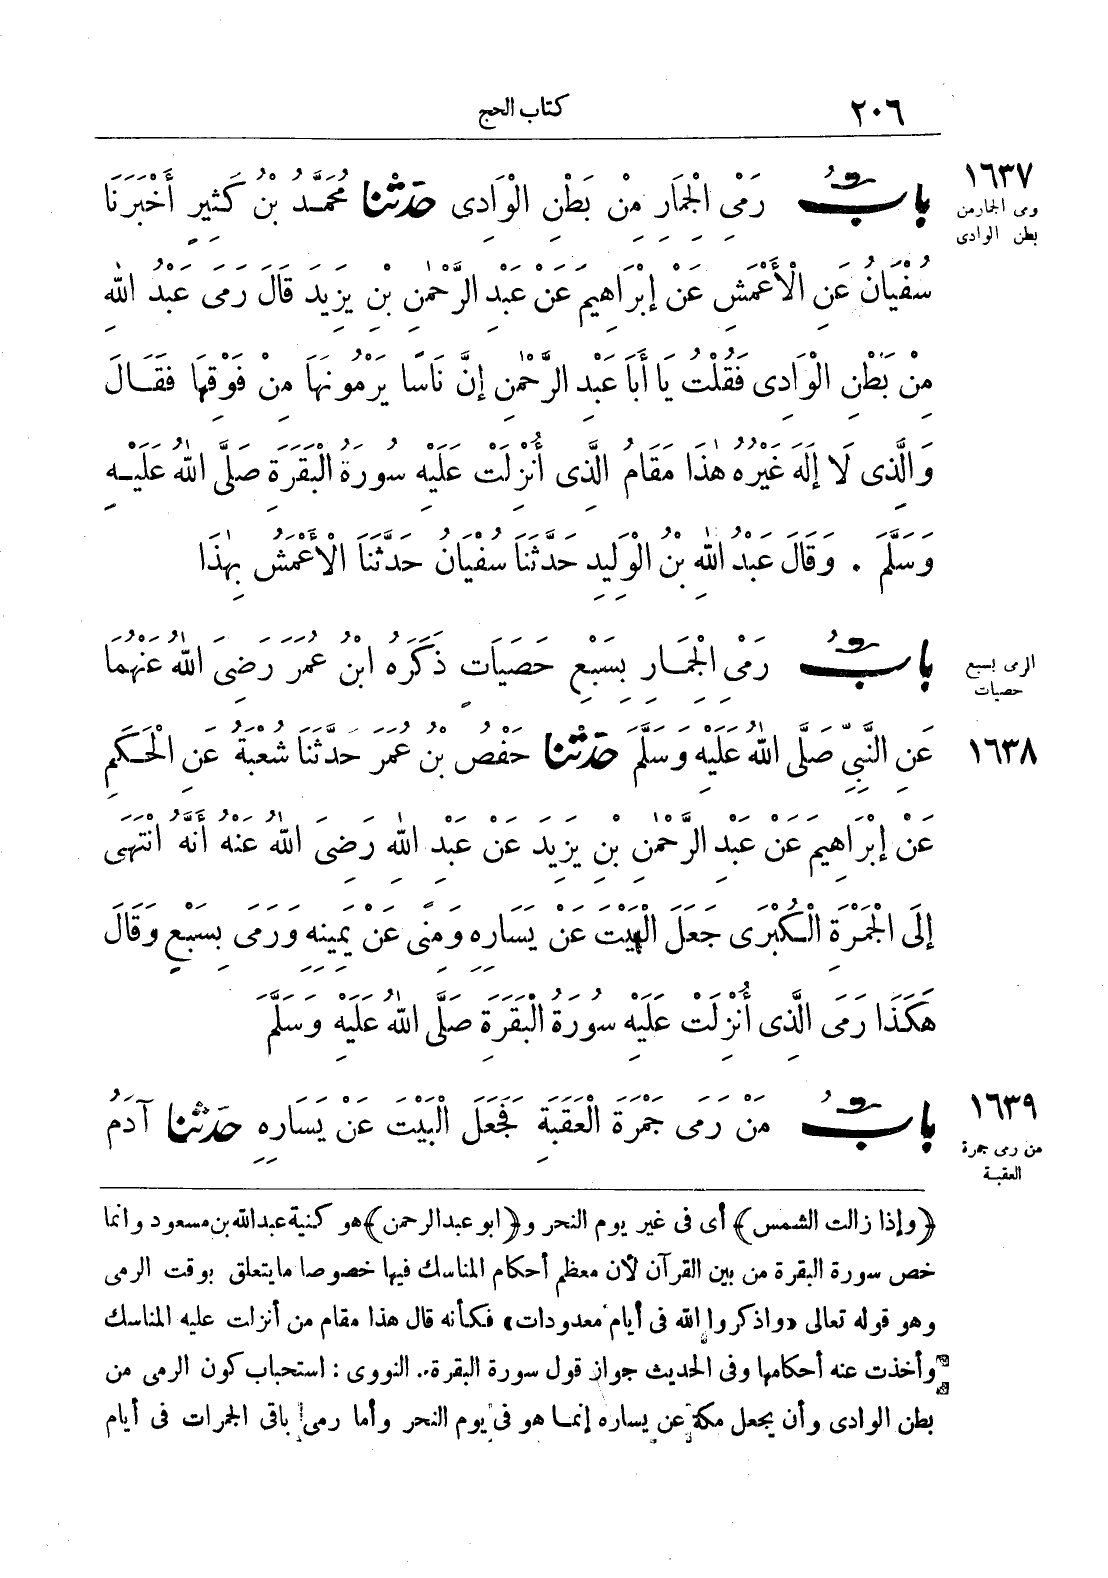 ٢٠٦ كتاب الحج
١٦٣٧
رمى الجمار من
بطن الوادى
باب رَمْىِ الْجِمَارِ مِنْ بَطْنِ الْوَادِى حَدَّثَنَا مُحَمَّدُ بْنُ كَثِيرٍ أَخْبَرَنَا
سُفْيَانُ عَنِ الْأَعْمَشِ عَنْ إِبْرَاهِيمَ عَنْ عَبْدِ الرَّحْمٰنِ بْنِ يَزِيدَ قَالَ رَمَى عَبْدُ اللهِ
مِنْ بَطْنِ الْوَادِى فَقُلْتُ يَا أَبَا عَبْدِ الرَّحْمٰنِ إِنَّ نَاسًا يَرْمُونَهَا مِنْ فَوْقِهَا فَقَالَ
وَالَّذِى لَا إِلَهَ غَيْرُهُ هٰذَا مَقَامُ الَّذِى أُنْزِلَتْ عَلَيْهِ سُورَةُ الْبَقَرَةِ صَلَّى اللهُ عَلَيْهِ
وَسَلَّمَ . وَقَالَ عَبْدُ اللهِ بْنُ الْوَلِيدِ حَدَّثَنَا سُفْيَانُ حَدَّثَنَا الْأَعْمَشُ بِهٰذَا
الرمى بسبع
حصيات
باب رَمْىِ الْجِمَارِ بِسَبْعِ حَصَيَاتٍ ذَكَرَهُ ابْنُ عُمَرَ رَضِىَ اللهُ عَنْهُمَا
١٦٣٨
عَنِ النَّبِىِّ صَلَّى اللهُ عَلَيْهِ وَسَلَّمَ حَدَّثَنَا حَفْصُ بْنُ عُمَرَ حَدَّثَنَا شُعْبَةُ عَنِ الْحَكَمِ
عَنْ إِبْرَاهِيمَ عَنْ عَبْدِ الرَّحْمٰنِ بْنِ يَزِيدَ عَنْ عَبْدِ اللهِ رَضِىَ اللهُ عَنْهُ أَنَّهُ انْتَهَى
إِلَى الْجَمْرَةِ الْكُبْرَى جَعَلَ الْبَيْتَ عَنْ يَسَارِهِ وَمِنًى عَنْ يَمِينِهِ وَرَمَى بِسَبْعٍ وَقَالَ
هَكَذَا رَمَى الَّذِى أُنْزِلَتْ عَلَيْهِ سُورَةُ الْبَقَرَةِ صَلَّى اللهُ عَلَيْهِ وَسَلَّمَ
١٦٣٩
من رمى جمرة
العقبة
باب مَنْ رَمَى جَمْرَةَ الْعَقَبَةِ فَجَعَلَ الْبَيْتَ عَنْ يَسَارِهِ حَدَّثَنَا آدَمُ
﴿وإذا زالت الشمس﴾ أى فى غير يوم النحر و﴿ابو عبد الرحمن﴾ هو كنية عبد الله بن مسعود وانما
خص سورة البقرة من بين القرآن لأن معظم أحكام المناسك فيها خصوصا ما يتعلق بوقت الرمى
وهو قوله تعالى «واذكروا الله فى أيام معدودات» فكأنه قال هذا مقام من أنزلت عليه المناسك
وأخذت عنه أحكامها وفى الحديث جواز قول سورة البقرة. النووى : استحباب كون الرمى من
بطن الوادى وأن يجعل مكة عن يساره إنما هو فى يوم النحر وأما رمى باقى الجمرات فى أيام